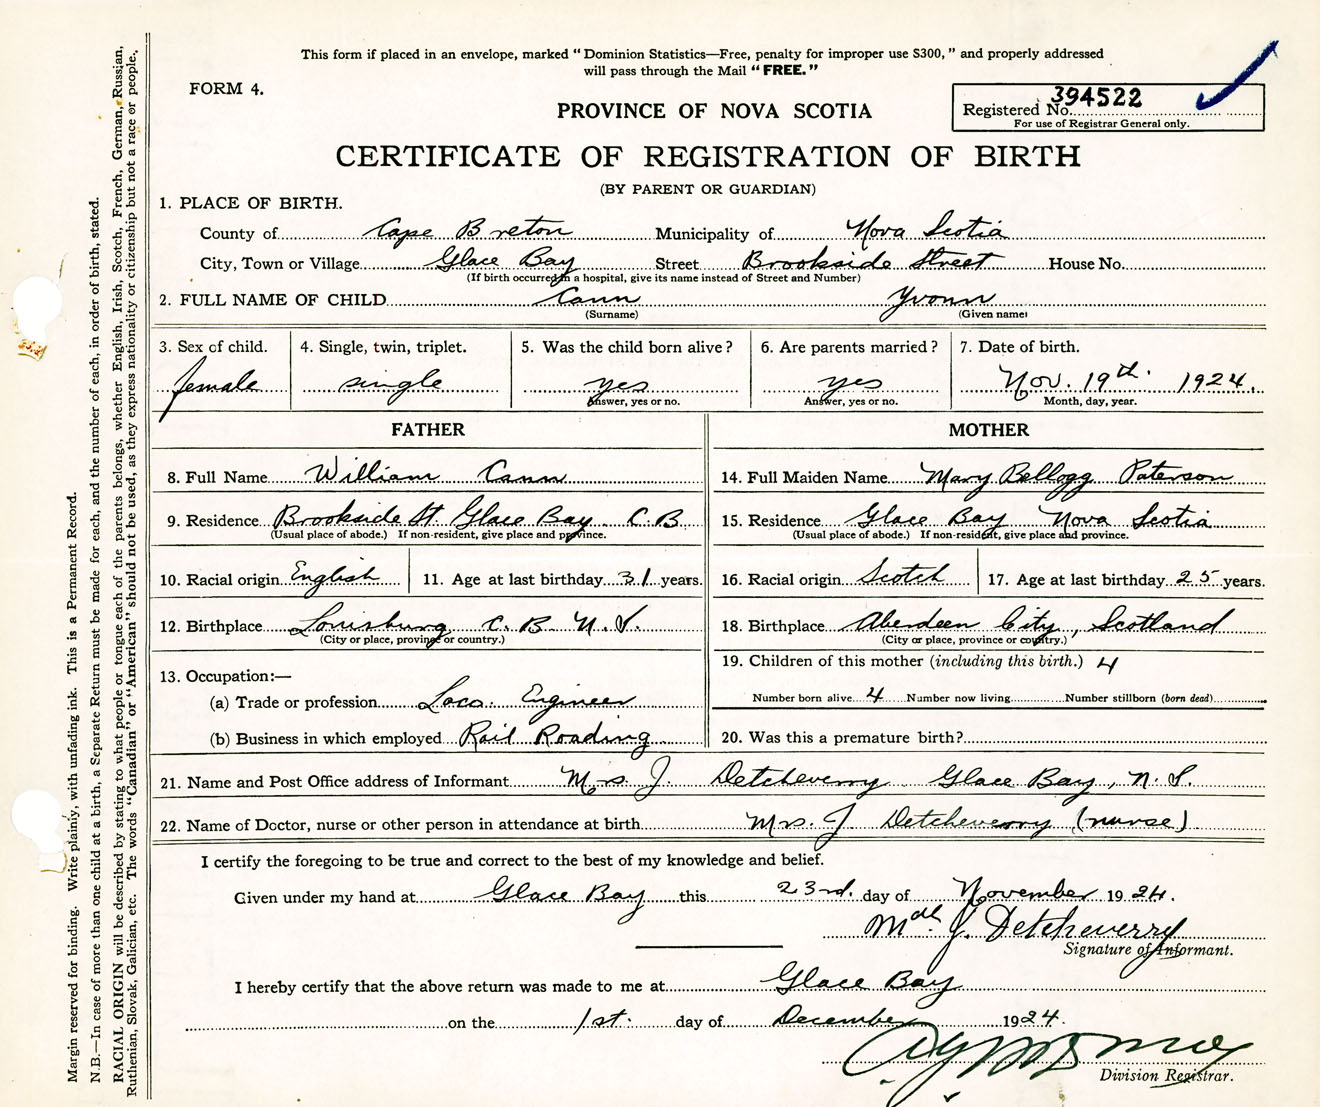 This form if placed in an envelope, marked "Dominion Statistics—Free, penalty for improper use $300," and properly addressed
will pass through the Mail "FREE."
FORM 4.
394522
Registered No.
For use of Registrar General only.
PROVINCE OF NOVA SCOTIA
CERTIFICATE OF REGISTRATION OF BIRTH
(BY PARENT OR GUARDIAN)
1. PLACE OF BIRTH.
County of Cape Breton Municipality of Nova Scotia
City, Town or Village Glace Bay Street Brookside Street House No.
(If birth occurred in a hospital, give its name instead of Street and Number)
2. FULL NAME OF CHILD Cann Yvonn
(Surname) (Given name)
3. Sex of child. 4. Single, twin, triplet. 5. Was the child born alive? 6. Are parents married? 7. Date of birth.
female single yes yes Nov. 19th. 1924.
Answer, yes or no. Answer, yes or no. Month, day, year.
FATHER MOTHER
8. Full Name William Cann 14. Full Maiden Name Mary Bellogg Paterson
9. Residence Brookside St. Glace Bay. C B 15. Residence Glace Bay Nova Scotia
(Usual place of abode.) If non-resident, give place and province. (Usual place of abode.) If non-resident, give place and province.
10. Racial origin English 11. Age at last birthday 31 years. 16. Racial origin Scotch 17. Age at last birthday 25 years.
12. Birthplace Louisburg C. B. N. S. 18. Birthplace Aberdeen City, Scotland
(City or place, province or country.) (City or place, province or country.)
13. Occupation:— 19. Children of this mother (including this birth.) 4
(a) Trade or profession Loco. Engineer Number born alive 4 Number now living Number stillborn (born dead)
(b) Business in which employed Rail Roading 20. Was this a premature birth?
21. Name and Post Office address of Informant Mrs. J. Detcheverry Glace Bay, N. S.
22. Name of Doctor, nurse or other person in attendance at birth Mrs. J Detcheverry (nurse)
I certify the foregoing to be true and correct to the best of my knowledge and belief.
Given under my hand at Glace Bay this 23rd. day of November 1924.
Mde. J. Detcheverry
Signature of Informant.
I hereby certify that the above return was made to me at Glace Bay
on the 1st. day of December 1924.
Division Registrar.
Margin reserved for binding. Write plainly, with unfading ink. This is a Permanent Record.
N.B.—In case of more than one child at a birth, a Separate Return must be made for each, and the number of each, in order of birth, stated.
RACIAL ORIGIN will be described by stating to what people or tongue each of the parents belongs, whether English, Irish, Scotch, French, German, Russian,
Ruthenian, Slovak, Galician, etc. The words "Canadian" or "American" should not be used, as they express nationality or citizenship but not a race or people.